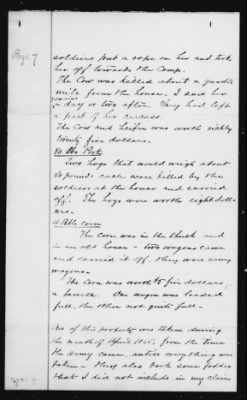 Page 7
soldiers put a rope on her and took
her off towards the Camp.
The Cow was killed about a quarter
mile from the house. I saw her
a day or two after. They had left
a part of her carcass.
The Cow and heifer was worth nighly
Twenty five dollars.
Two hogs that would weigh about
80 pounds each were killed by the
soldiers at the house and carried
off. The hogs were worth eight doll-
ars.
corn
The corn was in the shuck and
in an old house - two wagons came
and carried it off. they were army
wagons.
The corn was worth five dollars
a barrell. One wagon was loaded
full, the other not quite full.
All of this property was taken during
the month of April 1865. from the time
the army came, until every thing was
taken - They also took some fodder
that I did not include in my claim